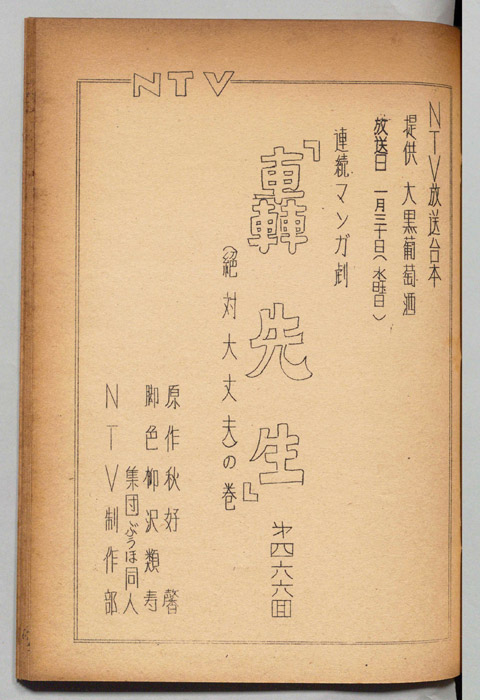 NTV
NTV放送台本
提供 大黒葡萄酒
放送日 一月三十日（水曜日）
連続マンガ劇
『轟先生』
（絶対大丈夫）の巻
才四六六回
原作 秋好 馨
脚色 柳沢類寿
集団ぶうほ同人
NTV制作部